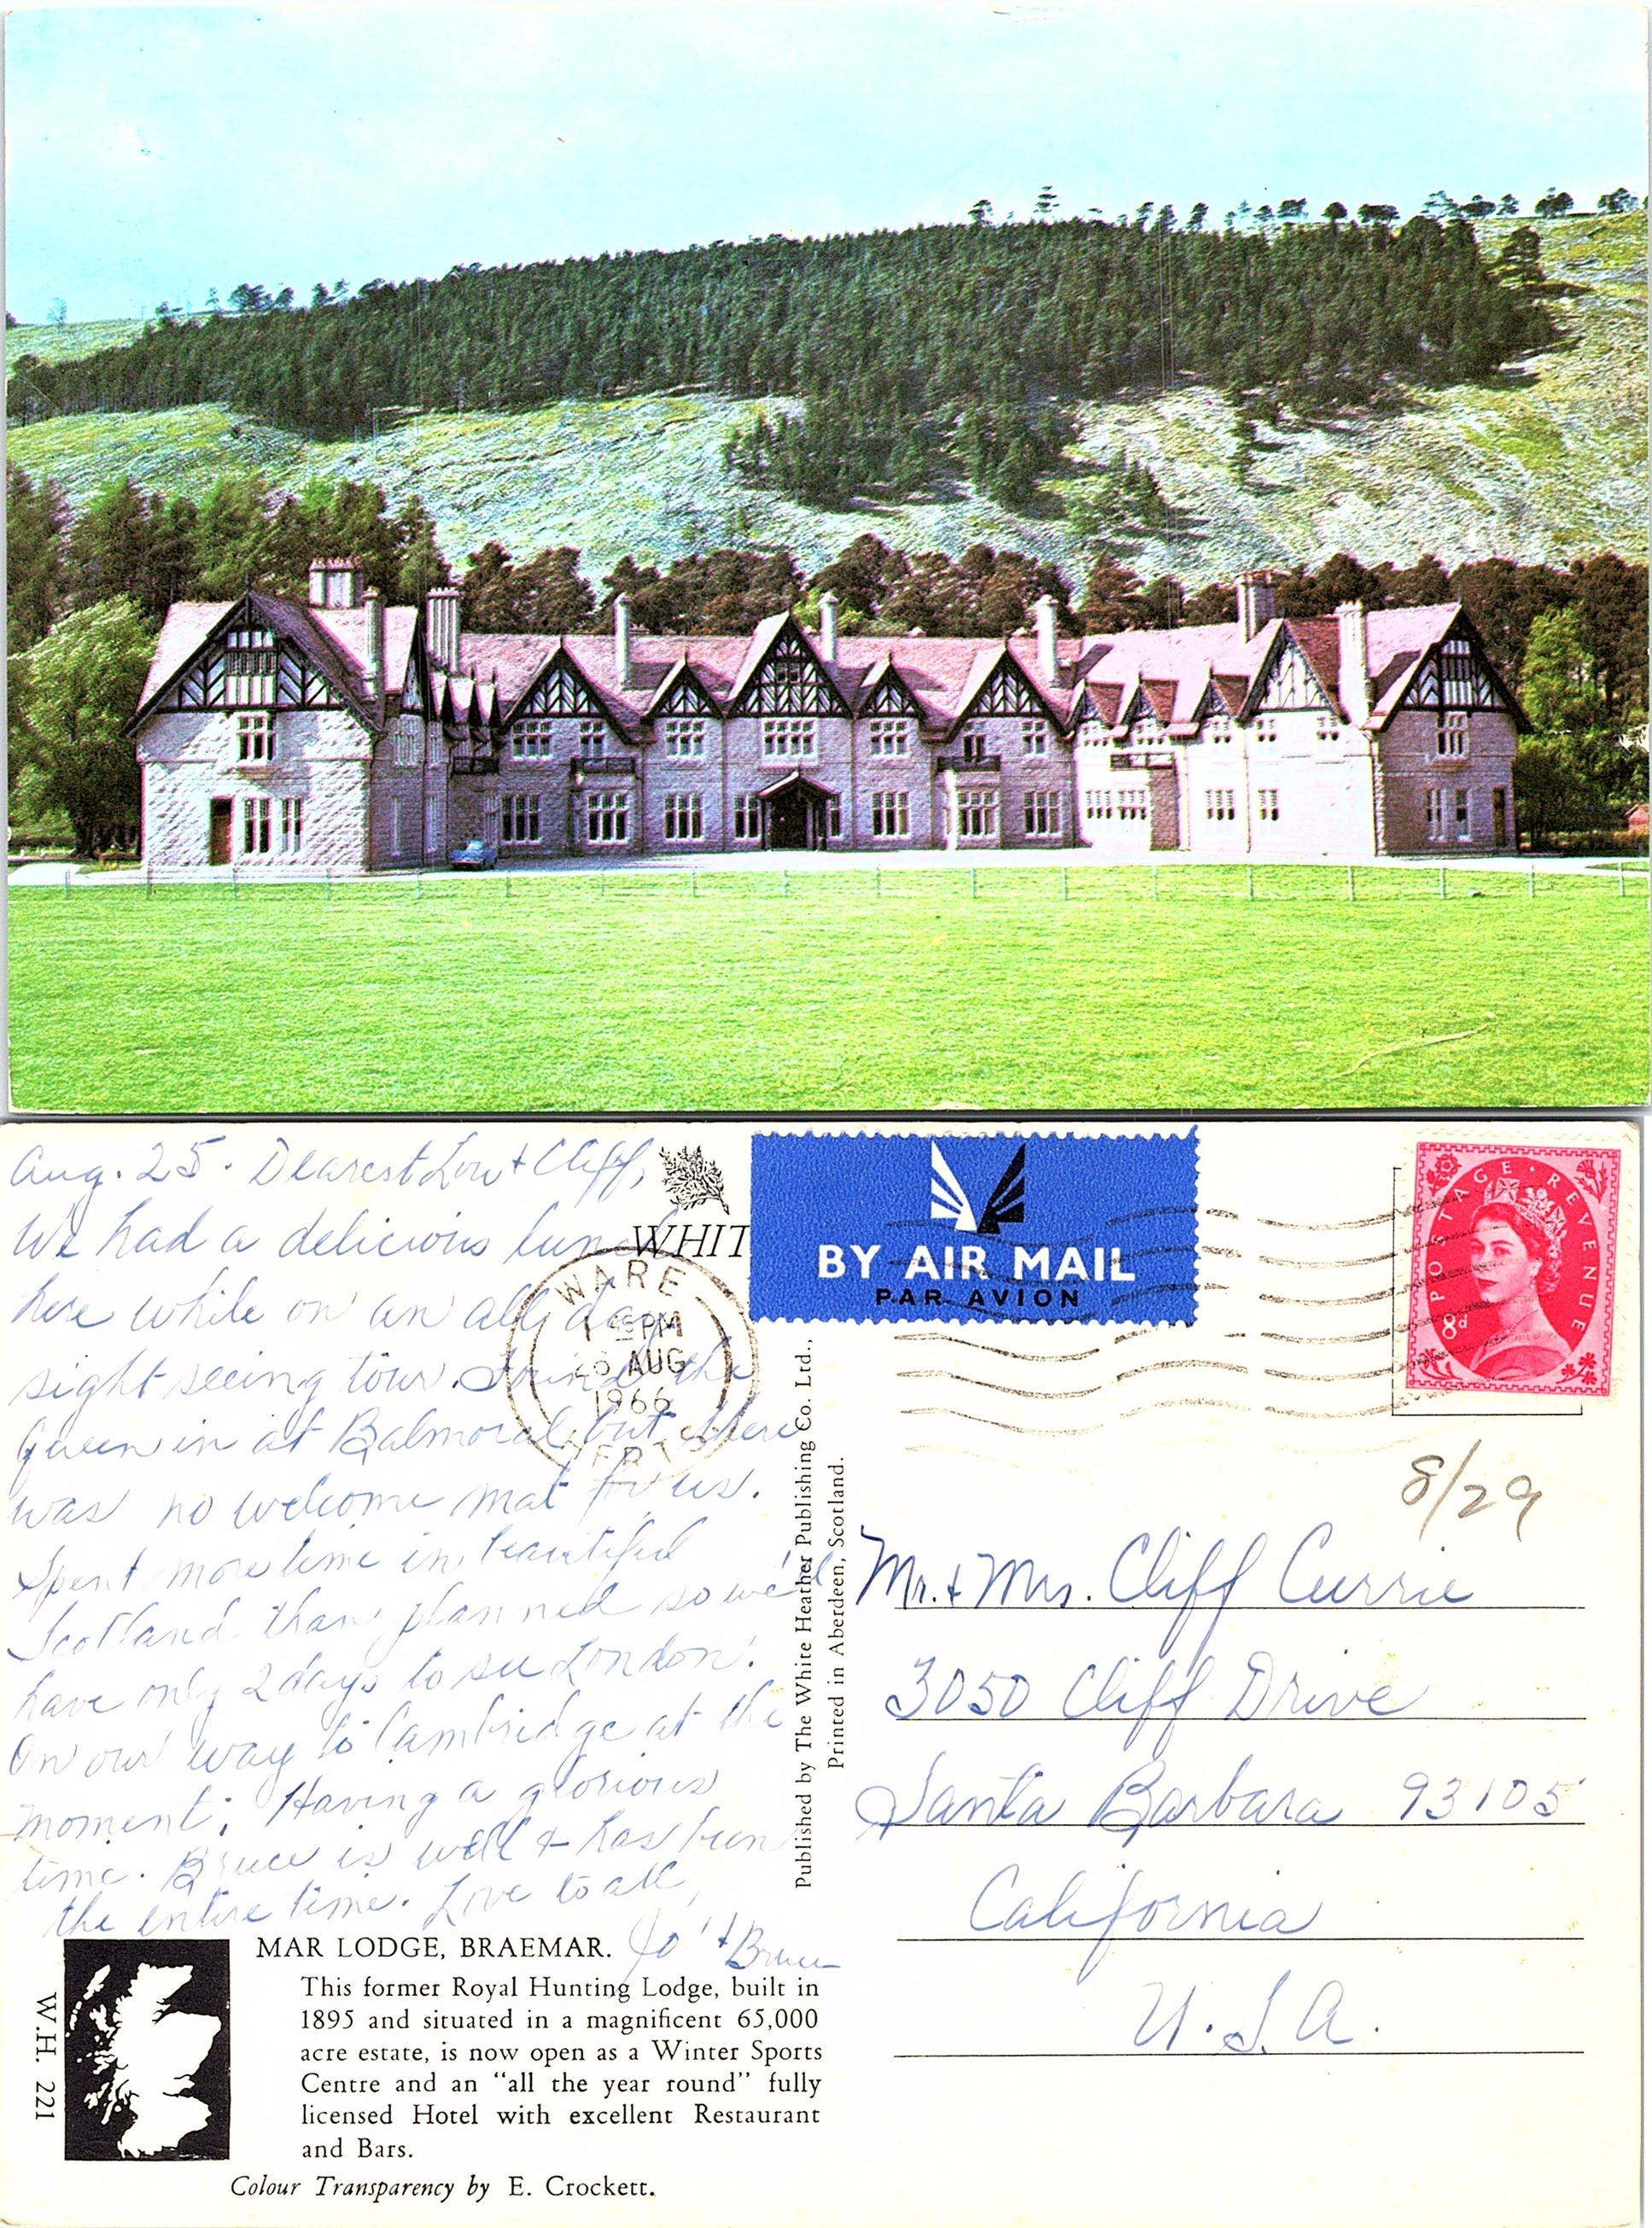 Aug. 25. Dearest Lou + Cliff,
We had a delicious lunch
here while on an all day
sight seeing tour. Found the
Queen in at Balmoral but there
was no welcome mat for us.
Spent more time in beautiful
Scotland than planned so we'll
have only 2 days to see London.
On our way to Cambridge at the
moment. Having a glorious
time. Bruce is well + has been
the entire time. Love to all,
Jo + Bruce
WHIT
WARE
PM
26 AUG
1966
HERTS
BY AIR MAIL
PAR AVION
POSTAGE REVENUE
8d
8/29
Mr. + Mrs. Cliff Currie
3050 Cliff Drive
Santa Barbara 93105
California
U.S.A.
Published by The White Heather Publishing Co. Ltd.,
Printed in Aberdeen, Scotland.
W.H. 221
MAR LODGE, BRAEMAR.
This former Royal Hunting Lodge, built in
1895 and situated in a magnificent 65,000
acre estate, is now open as a Winter Sports
Centre and an “all the year round” fully
licensed Hotel with excellent Restaurant
and Bars.
Colour Transparency by E. Crockett.